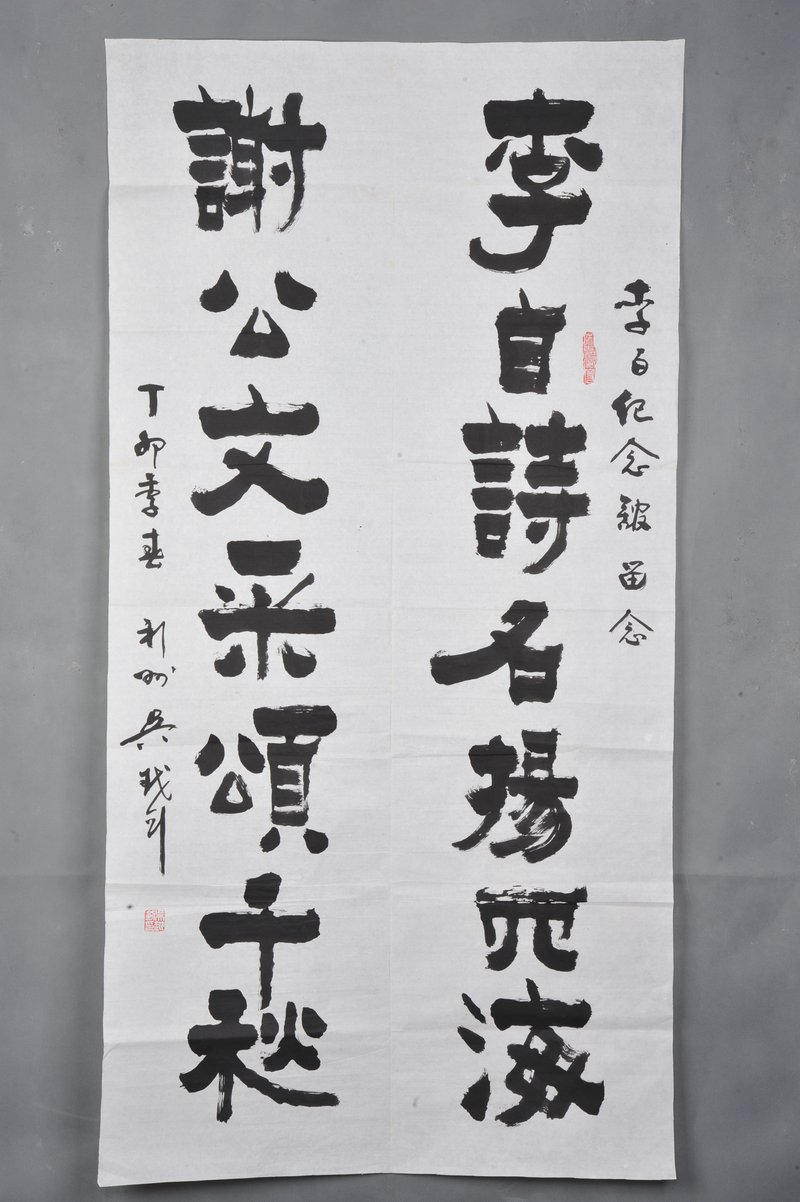 李白纪念舘留念
李白詩名揚四海
謝公文采頌千秋
丁卯季春 利州吴